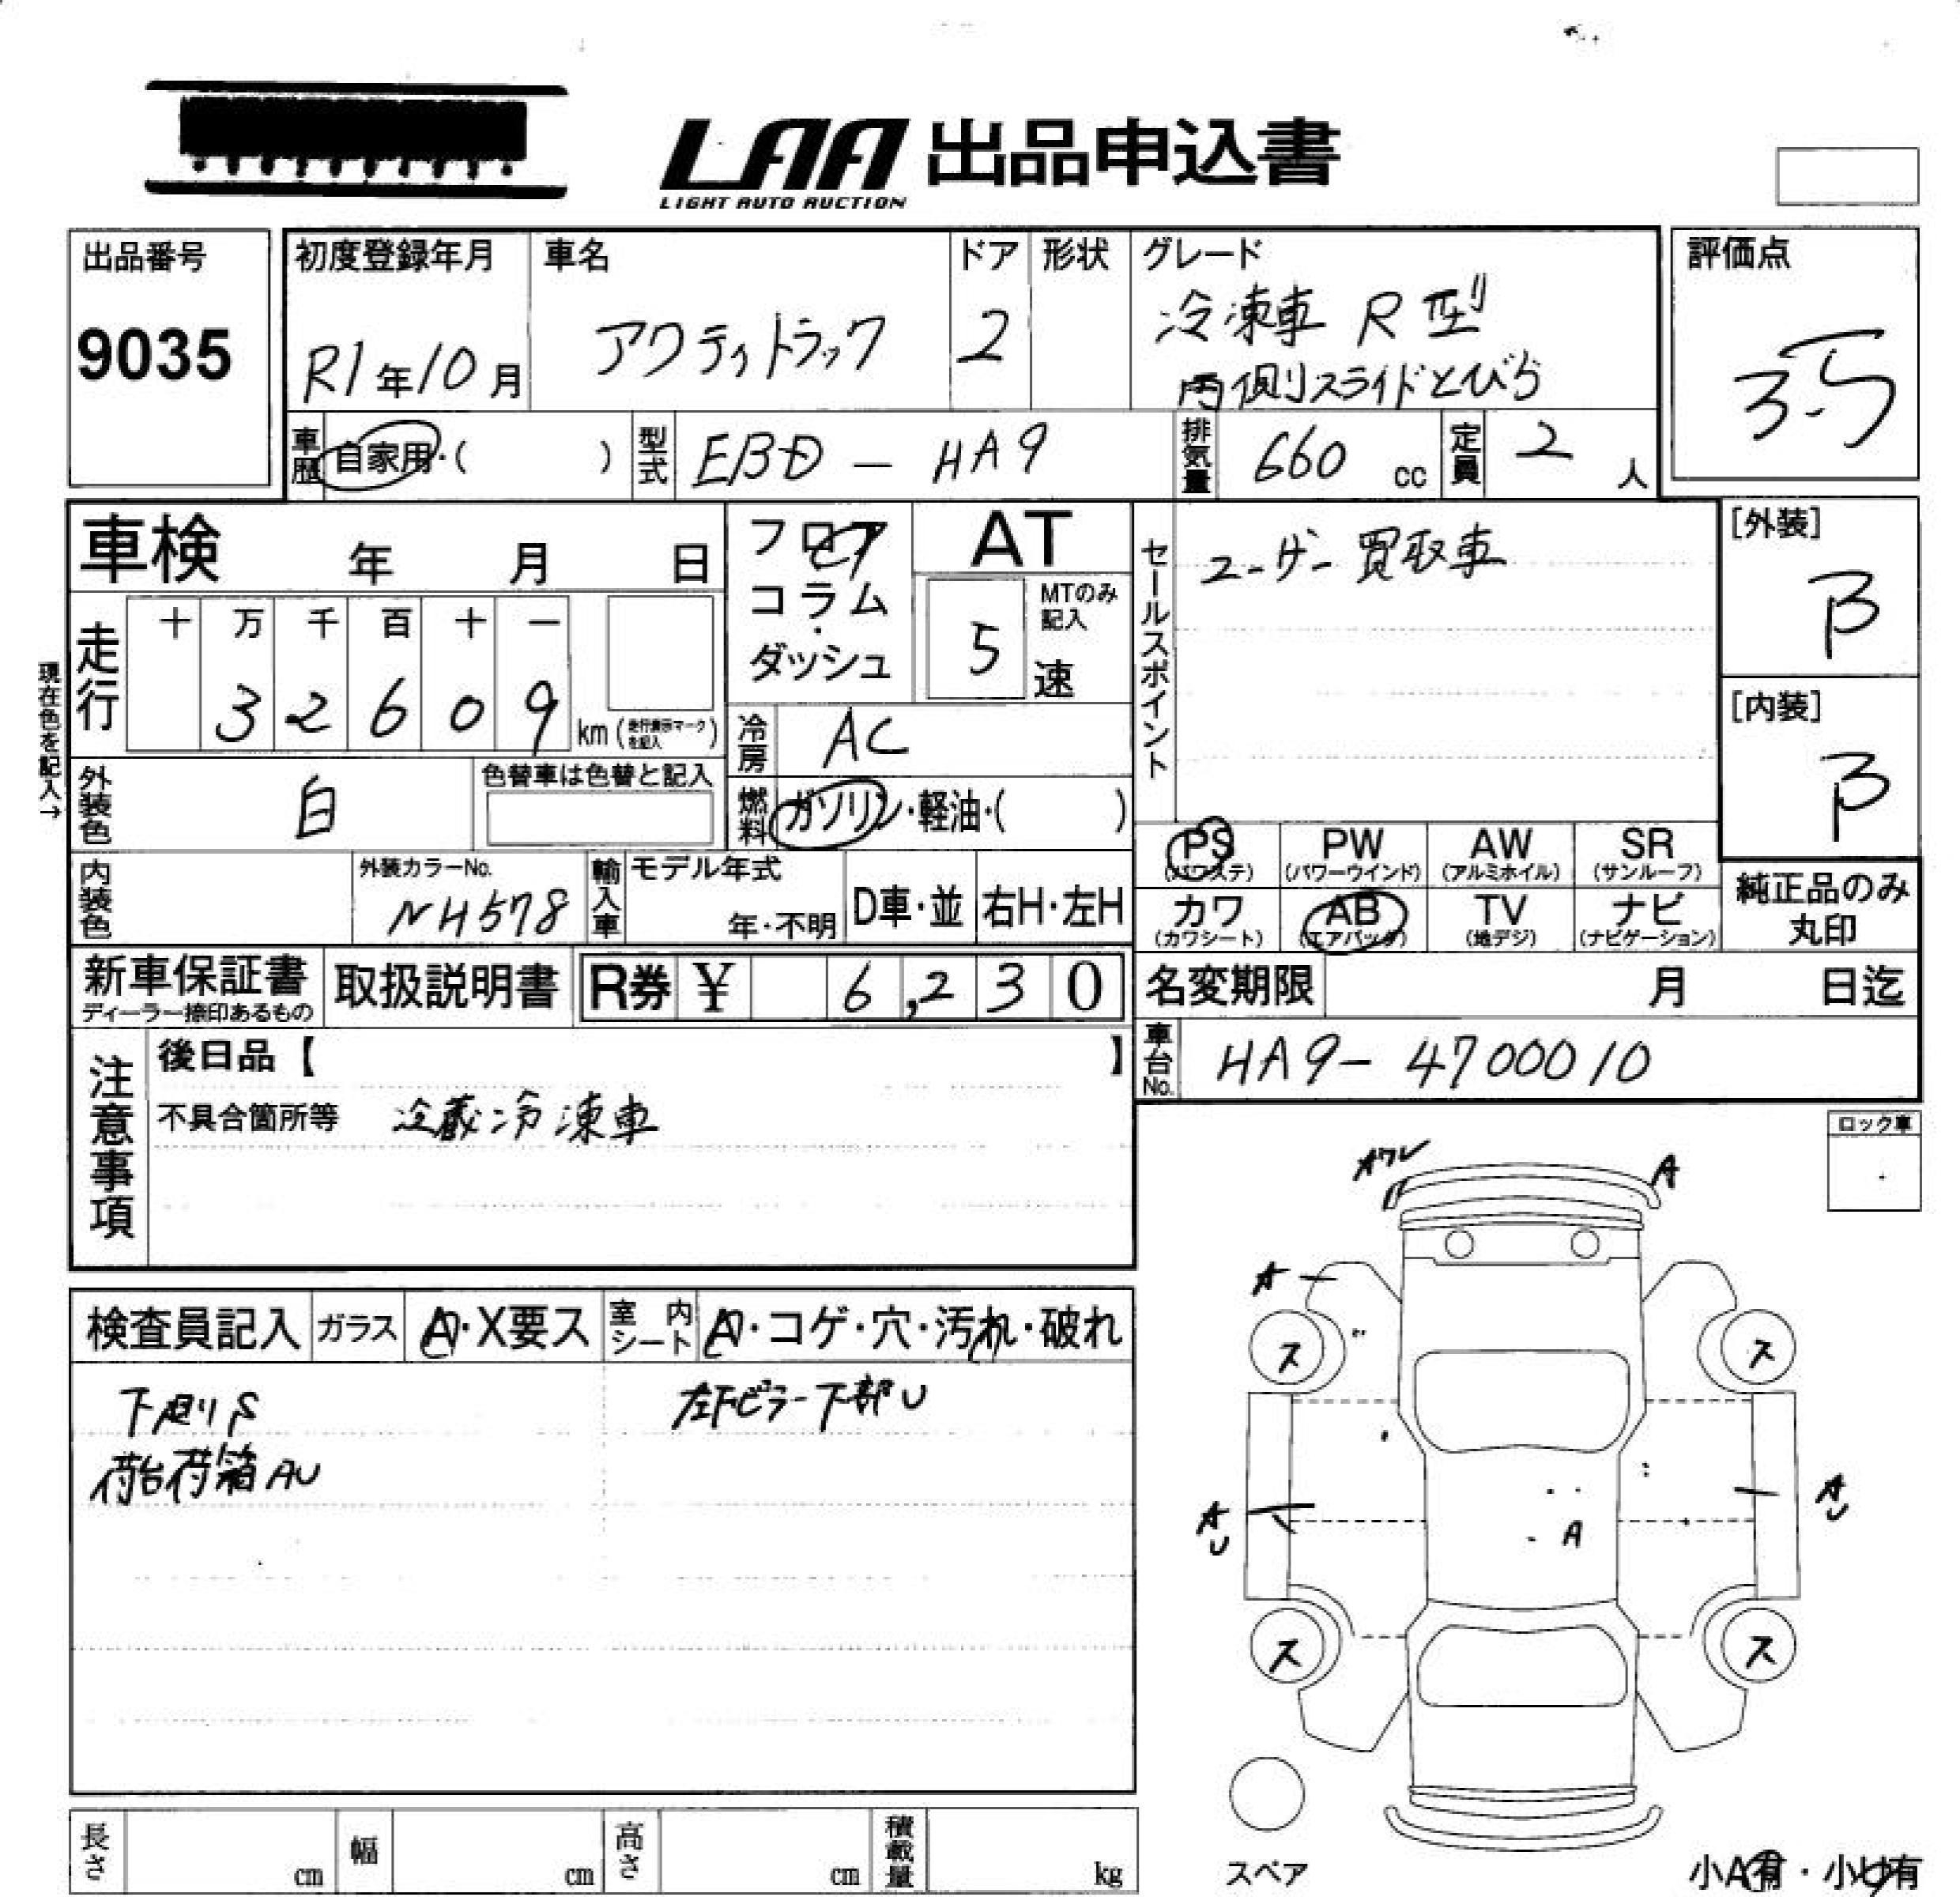 LAA 出品申込書
LIGHT AUTO AUCTION
出品番号
9035
初度登録年月
R1年10月
車名
アクティトラック
ドア
2
形状
グレード
冷凍車 R型
両側スライドとびら
評価点
3.5
車歴
自家用・( )
型式
EBD - HA9
排気量
660 cc
定員
2 人
車検 年 月 日
フロア
・
コラム
・
ダッシュ
AT
MTのみ
記入
5 速
セールスポイント
ユーザー買取車
[外装]
B
[内装]
B
現在色を記入→
走行
十 万 千 百 十 一
3 2 6 0 9 km
冷房
AC
外装色
白
色替車は色替と記入
燃料
ガソリン・軽油・( )
内装色
外装カラーNo.
NH578
輸入車
モデル年式
年・不明
D車・並
右H・左H
PS
(パワステ)
PW
(パワーウインド)
AW
(アルミホイル)
SR
(サンルーフ)
カワ
(カワシート)
AB
(エアバッグ)
TV
(地デジ)
ナビ
(ナビゲーション)
純正品のみ
丸印
新車保証書
ディーラー捺印あるもの
取扱説明書
R券 ¥ 6,230
名変期限 月 日迄
車台No.
HA9-4700010
注意事項
後日品【 】
不具合箇所等 冷蔵冷凍車
ロック車
検査員記入
ガラス
A・X要ス
室内
シート
A・コゲ・穴・汚れ・破れ
下廻りS
荷台荷箱AU
左Fピラー下部U
Aワレ
A
A
ス
ス
AU
AU
A
ス
ス
スペア
小A有・小U有
長さ cm
幅 cm
高さ cm
積載量 kg